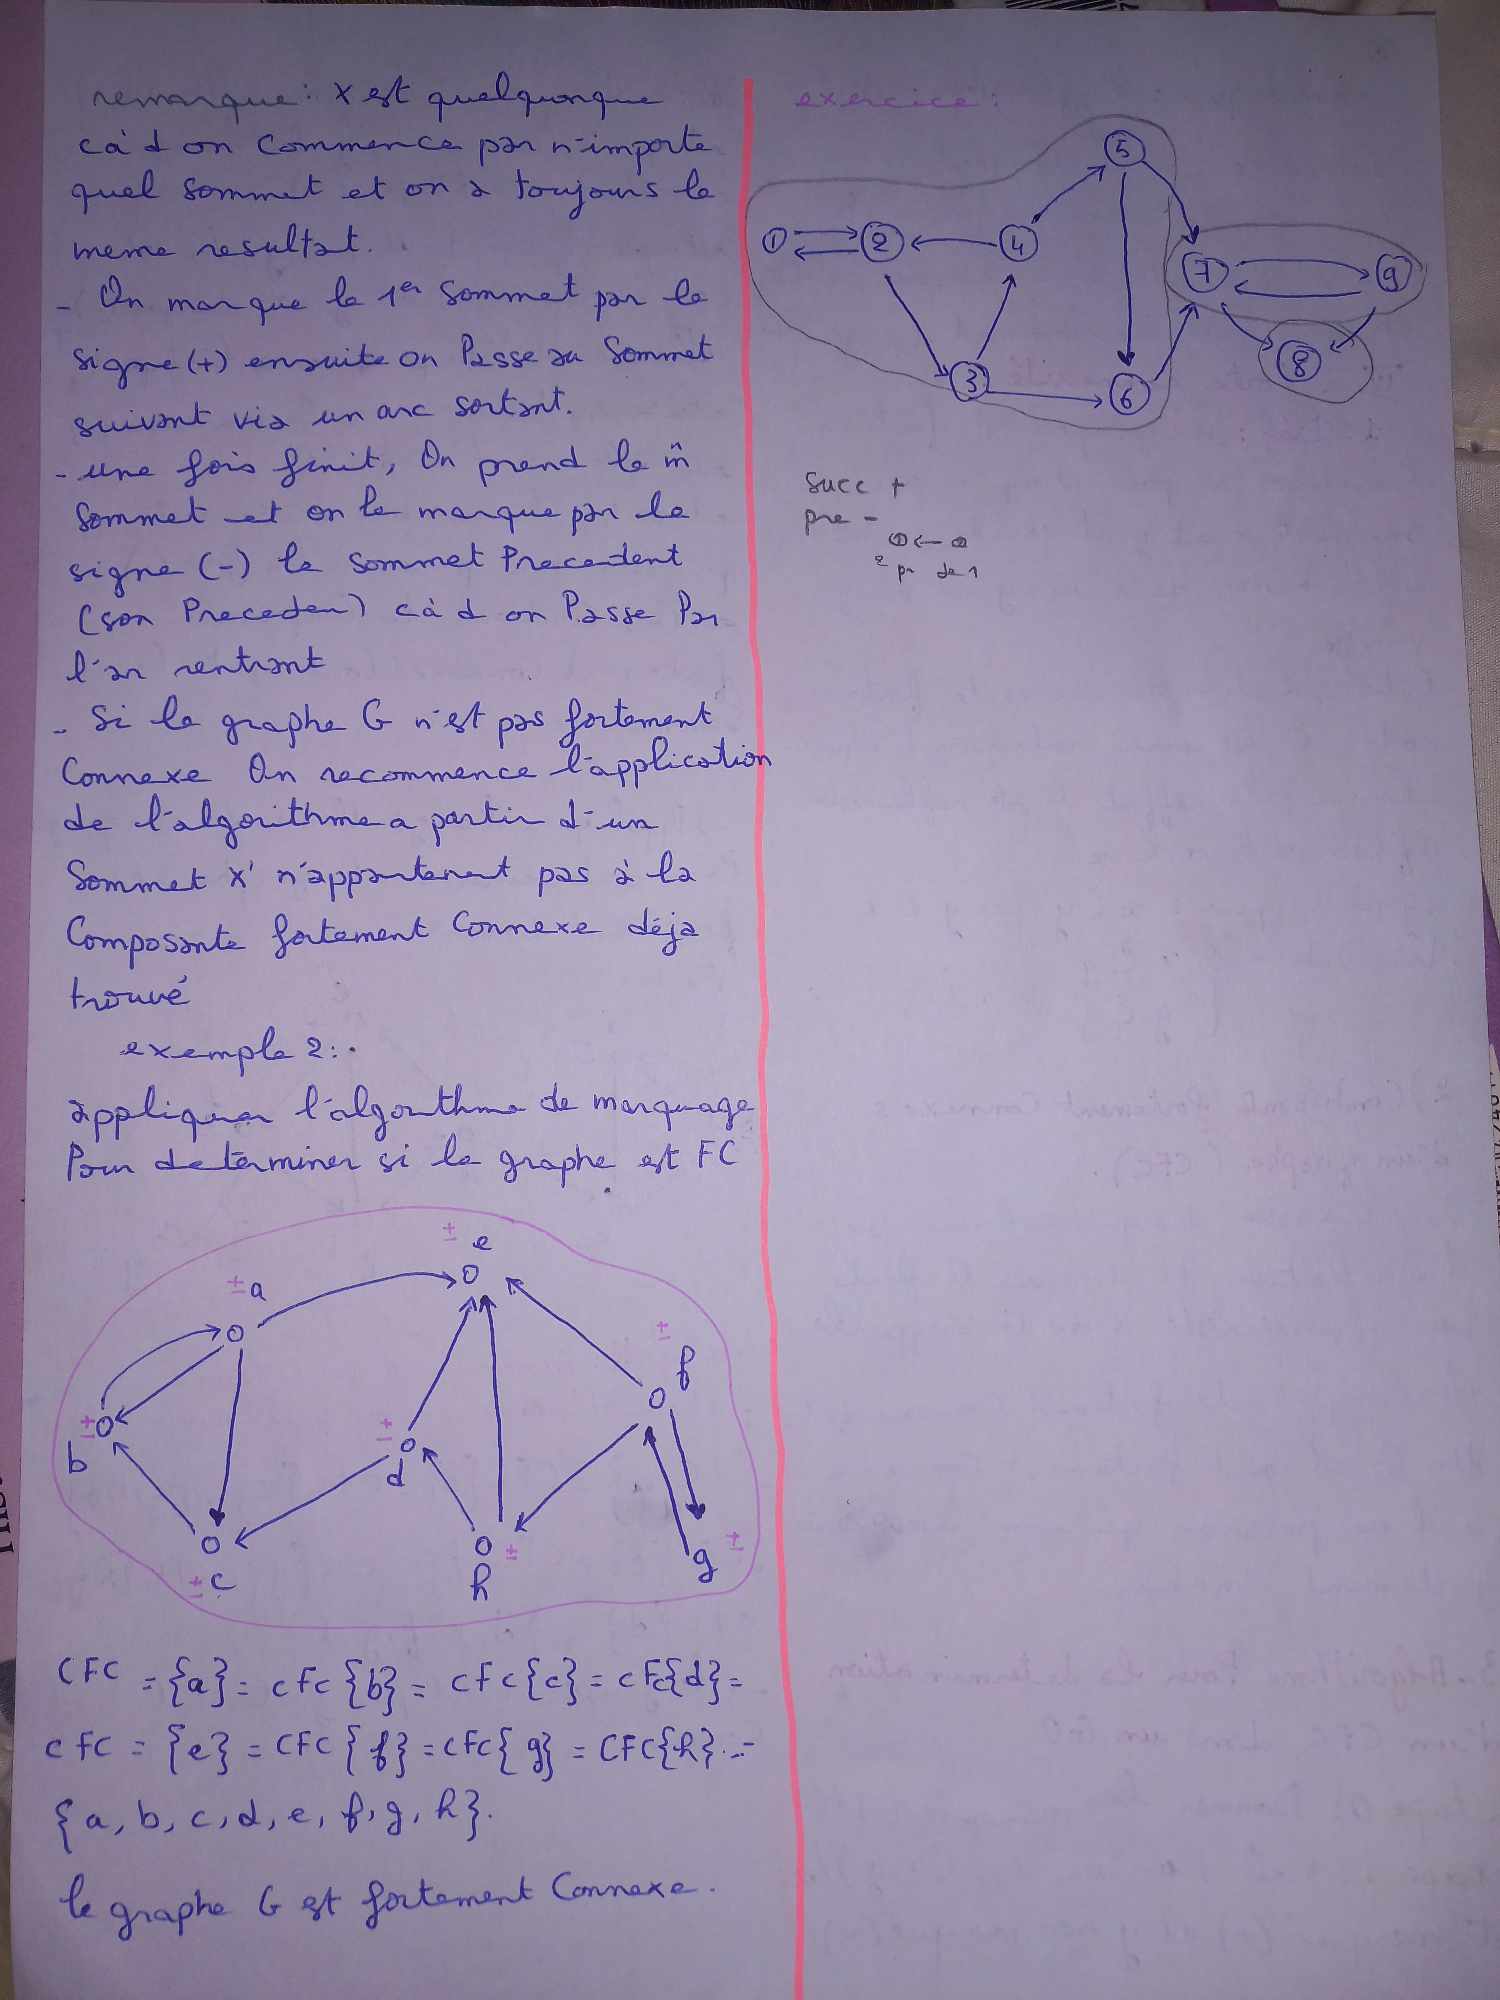 remarque : X est quelquonque
cà d on commence par n'importe
quel sommet et on a toujours le
meme resultat.
- On marque le 1er sommet par le
signe (+) ensuite on Passe au Sommet
suivant via un arc sortant.
- une fois finit, On prend le m̂
sommet et on le marque par le
signe (-) le sommet Precedent
(son Preceden) cà d on Passe Par
l'ar rentrant
- Si le graphe G n'est pas fortement
Connexe On recommence l'application
de l'algorithme a partir d'un
Sommet X' n'appartenent pas à la
Composante fortement Connexe déja
trouvé
exemple 2:.
appliquer l'algorithme de marquage
Pour determiner si le graphe est FC
± e
± a
± f
± b
± d
± c
h ±
g ±
CFC = {a} = cfc {b} = cfc {c} = cFc{d} =
cfc = {e} = CFC {f} = cfc{g} = CFC{h} . =
{a, b, c, d, e, f, g, h}.
le graphe G est fortement Connexe.
exercice :
5
1 2 4
7 9
8
3 6
Succ +
pre -
1 ← 2
2 pr de 1